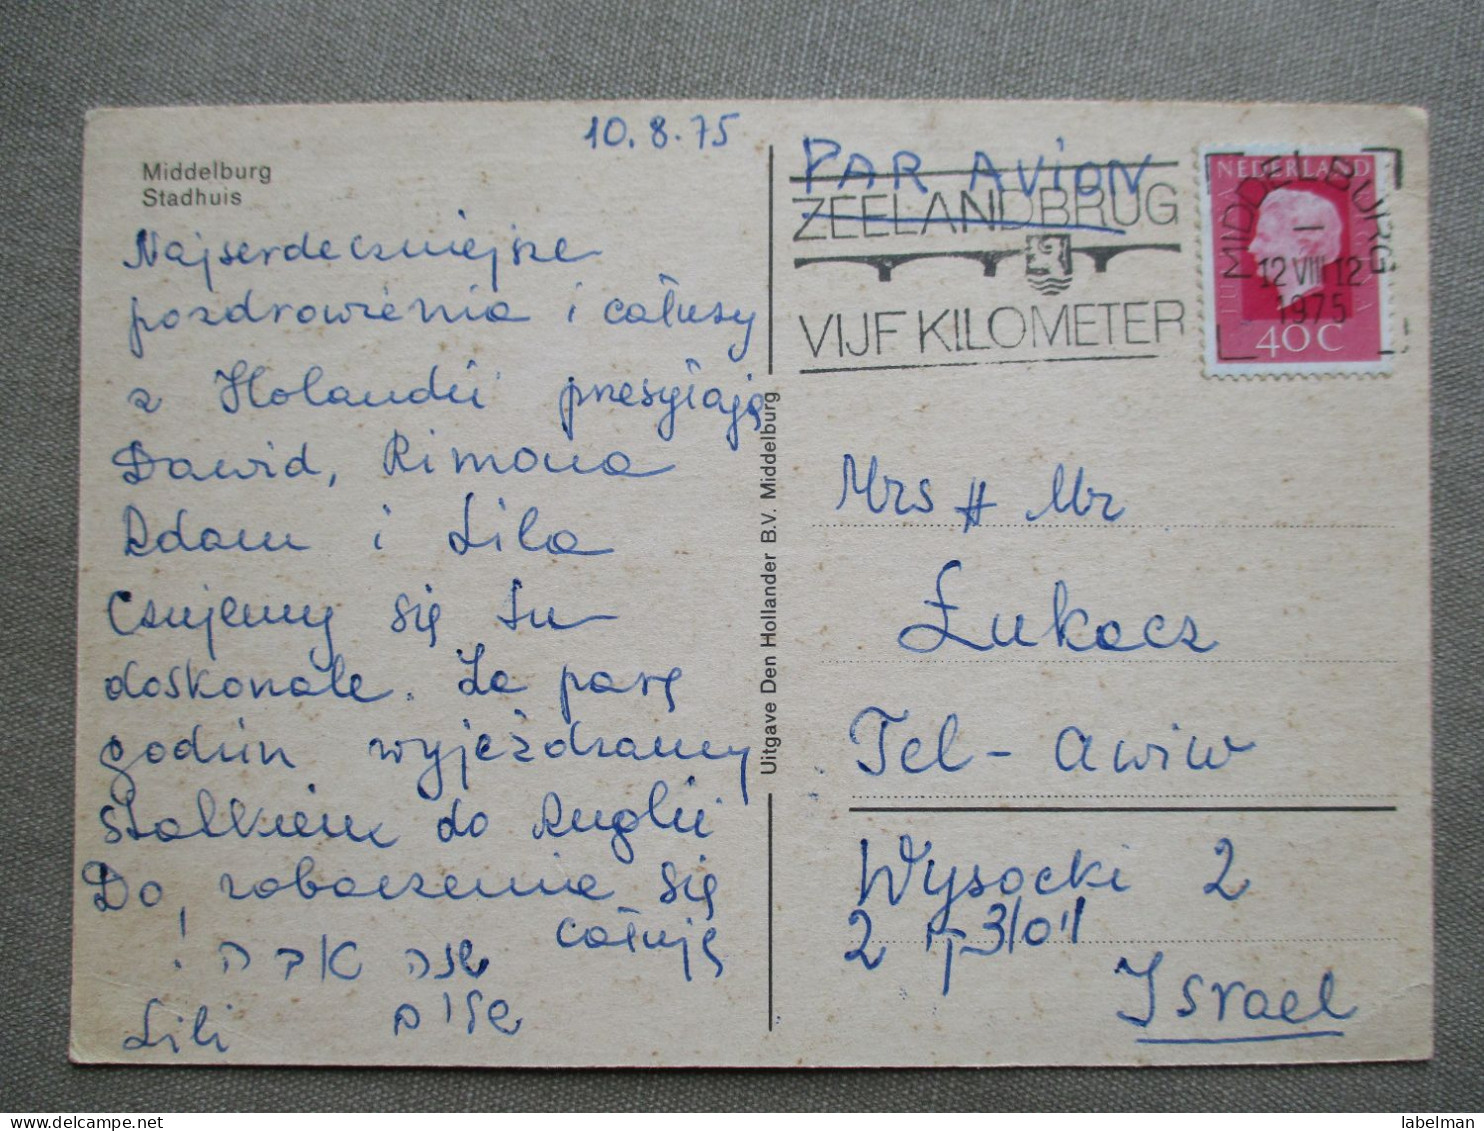 10.8.75
Middelburg
Stadhuis
Najserdeczniejsze
pozdrowienia i całusy
z Holandii przesyłają
Dawid, Rimona
Adam i Lila
Czujemy się tu
doskonale. Za parę
godzin wyjeżdżamy
statkiem do Anglii
Do zobaczenia się
całuję
שנה
שלום
Lili
Uitgave Den Hollander B.V. Middelburg
PAR AVION
ZEELANDBRUG
VIJF KILOMETER
NEDERLAND
MIDDELBURG
12 VIII 12
1975
40c
Mrs # Mr
Łukacz
Tel-Awiw
Wysocki 2
2 ויסוצקי
Israel
labelman